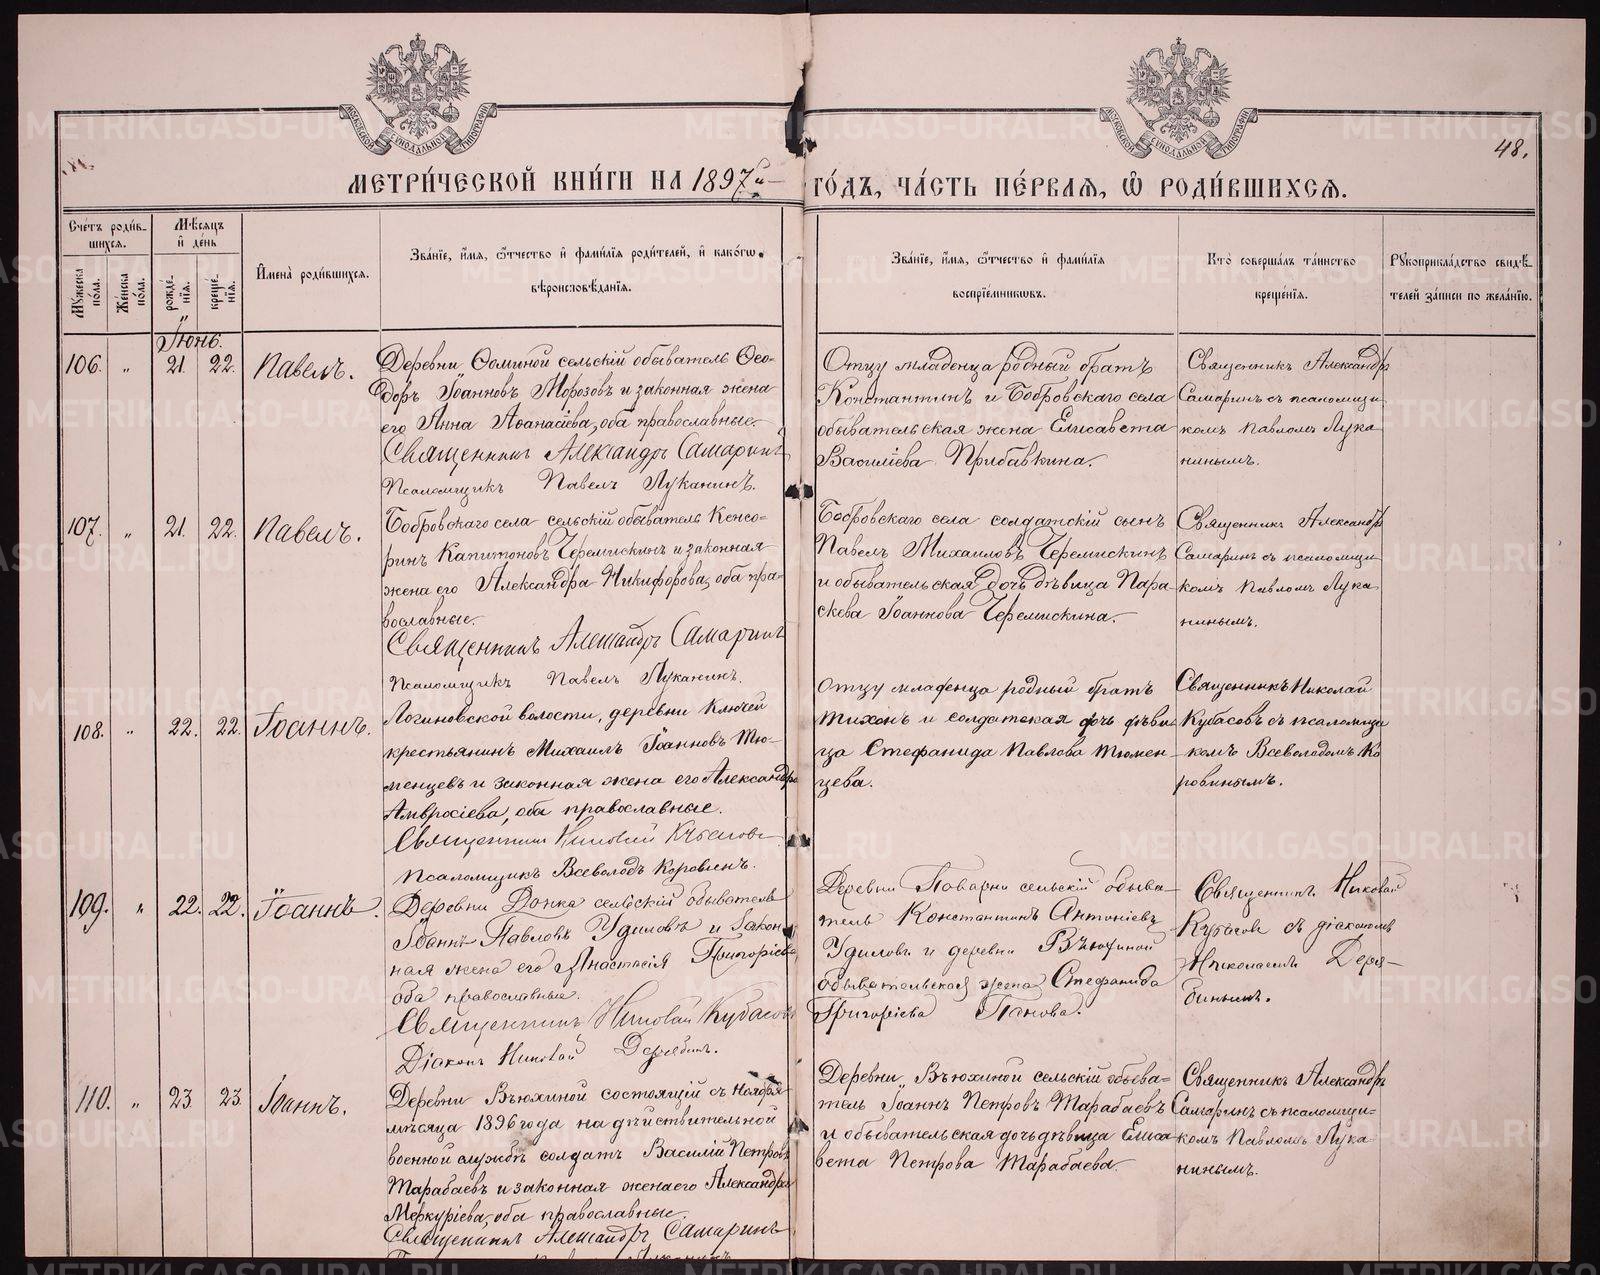 48.
МЕТРИ́ЧЕСКОЙ КНИ́ГИ НА 1897й ГО́ДЪ, ЧА́СТЬ ПЕ́РВАЯ, Ѽ РОДИ́ВШИХСЯ.
Сче́тъ роди́в-
шихся.
Мѣ́сяцъ
и҆ де́нь
И҆мена̀ роди́вшихся.
Зва́нїе, и҆́мя, ѻ҆́тчество и҆ фами́лїя роди́телей, и҆ како́гѡ
вѣроисповѣ́данїя.
Зва́нїе, и҆́мя, ѻ҆́тчество и҆ фами́лїя
воспрїе́мниковъ.
Кто̀ соверша́лъ та́инство
креще́нїя.
Рꙋкоприкла́дство свидѣ́-
телей за́писи по жела́нїю.
Мꙋ́жеска
по́ла.
Же́нска
по́ла.
рожде́-
нїя.
креще́-
нїя.
Іюнь.
106. " 21. 22. Павелъ.
Деревни Ѳоминой сельскій обыватель Ѳео-
доръ Іоанновъ Морозовъ и законная жена
его Анна Аѳанасіева, оба православные.
Священникъ Александръ Самаринъ
Псаломщикъ Павелъ Луканинъ.
Отцу младенца родный братъ
Константинъ и Бобровскаго села
обывательская жена Елисавета
Василіева Прибавкина.
Священникъ Александръ
Самаринъ съ псаломщи
комъ Павломъ Лука
нинымъ.
107. " 21. 22. Павелъ.
Бобровскаго села сельскій обыватель Кенсо-
ринъ Капитоновъ Черемискинъ и законная
жена его Александра Никифорова, оба пра-
вославные.
Священникъ Александръ Самаринъ
Псаломщикъ Павелъ Луканинъ.
Бобровскаго села солдатскій сынъ
Павелъ Михаиловъ Черемискинъ
и обывательская дочь дѣвица Пара-
скева Іоаннова Черемискина.
Священникъ Александръ
Самаринъ съ псаломщи
комъ Павломъ Лука
нинымъ.
108. " 22. 22. Іоаннъ.
Логиновской волости, деревни Ключей
крестьянинъ Михаилъ Іоанновъ Тю-
менцевъ и законная жена его Александра
Амвросіева, оба православные.
Священникъ Николай Кубасовъ
Псаломщикъ Всеволодъ Коровинъ.
Отцу младенца родный братъ
Тихонъ и солдатская дочь дѣви
ца Стефанида Павлова Тюмен-
цева.
Священникъ Николай
Кубасовъ съ псаломщи
комъ Всеволодомъ Ко
ровинымъ.
109. " 22. 22. Іоаннъ.
Деревни Донка сельскій обыватель
Іоаннъ Павловъ Удиловъ и закон
ная жена его Анастасія Григоріева
оба православные.
Священникъ Николай Кубасовъ
Діаконъ Николай Дерябинъ.
Деревни Поварни сельскій обыва-
тель Константинъ Антоніевъ
Удиловъ и деревни Вьюхиной
обывательская жена Стефанида
Григоріева Панова.
Священникъ Николай
Кубасовъ съ діакономъ
Николаемъ Деря-
бинымъ.
110. " 23. 23. Іоаннъ.
Деревни Вьюхиной состоящій съ Ноября
мѣсяца 1896 года на дѣйствительной
военной службѣ солдатъ Василій Петровъ
Тарабаевъ и законная жена его Александра
Меркуріева, оба православные.
Священникъ Александръ Самаринъ
Деревни Вьюхиной сельскій обыва-
тель Іоаннъ Петровъ Тарабаевъ
и обывательская дочь дѣвица Елиса
вета Петрова Тарабаева.
Священникъ Александръ
Самаринъ съ псаломщи-
комъ Павломъ Лука
нинымъ.
METRIKI.GASO-URAL.RU